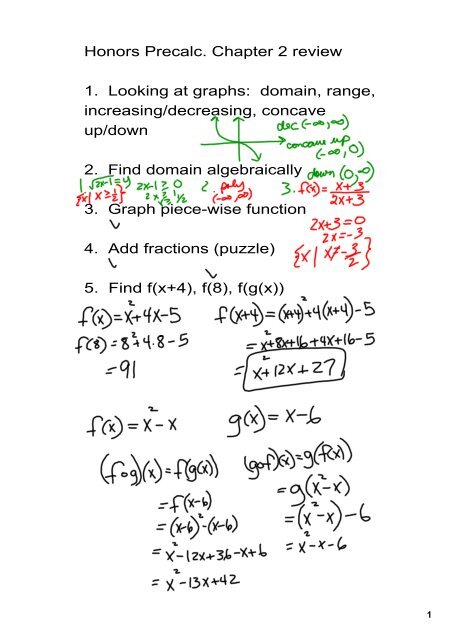 Honors Precalc. Chapter 2 review
1. Looking at graphs: domain, range,
increasing/decreasing, concave
up/down
dec (-∞, ∞)
concave up
(-∞, 0)
down (0, ∞)
2. Find domain algebraically
1 √2x-1 = y
{x | x ≥ ½}
2x-1 ≥ 0
2x ≥ 1/2
2. poly
(-∞, ∞)
3. f(x) = x+3/2x+3
2x+3=0
2x=-3
{x | x≠-3/2}
3. Graph piece-wise function
4. Add fractions (puzzle)
5. Find f(x+4), f(8), f(g(x))
f(x)=x²+4x-5
f(8)=8²+4·8-5
=91
f(x+4)=(x+4)²+4(x+4)-5
=x²+8x+16+4x+16-5
=x²+12x+27
f(x)=x²-x
g(x)=x-6
(f∘g)(x)=f(g(x))
=f(x-6)
=(x-6)²-(x-6)
=x²-12x+36-x+6
=x²-13x+42
(g∘f)(x)=g(f(x))
=g(x²-x)
=(x²-x)-6
=x²-x-6
1